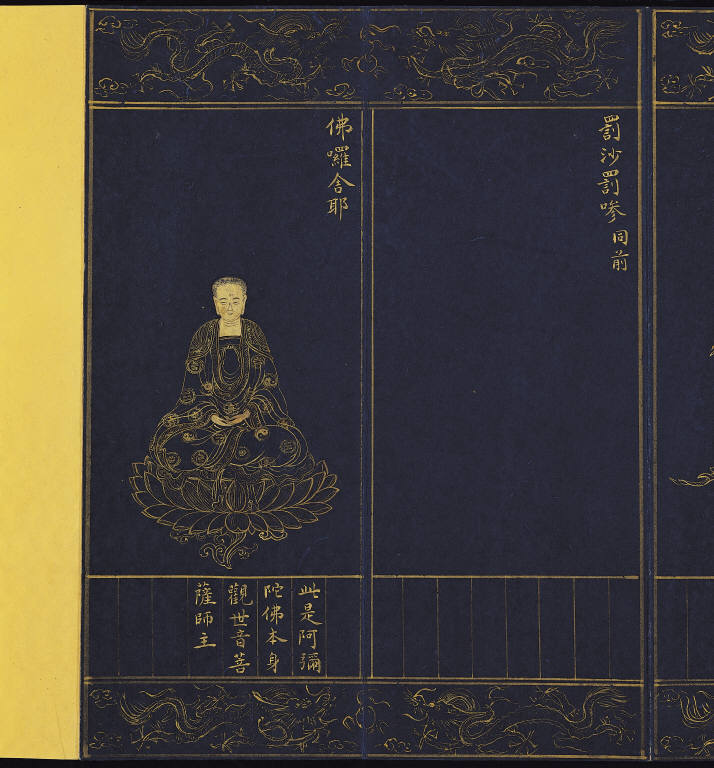 罰沙罰嘇 同前
佛囉舍耶
此是阿彌
陀佛本身
觀世音菩
薩師主